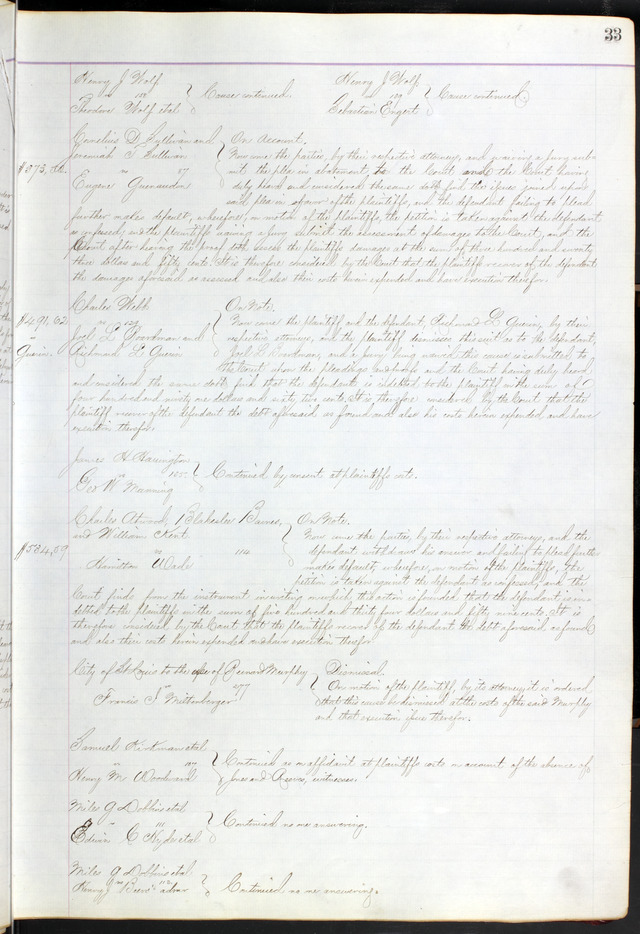 33
Henry J Wolf
vs
Theodore Wolf et al } Cause continued.
Henry J Wolf
vs 109
Sebastian Engert } Cause continued
Cornelius D. Sullivan and On Account.
Jeremiah Sullivan Now come the parties, by their respective attorneys, and waiving a jury sub-
mit the plea in abatement, to the Court and the Court having
vs 87 duly heard and considered the same doth find the issues joined upon
Eugene said plea in favor of the plaintiffs, and the defendant failing to plead
further makes default, wherefore, on motion of the plaintiffs, the petition is taken against the defendant
as confessed, and the plaintiffs waiving a jury submit the assessment of damages to the Court, and the
Court after having the proof doth assess the plaintiffs damages at the sum of three hundred and seventy
three dollars and fifty cents. It is therefore considered by the Court that the plaintiffs recover of the defendant
the damages aforesaid as assessed and also their costs herein expended and have execution therefor.
Charles Webb On Note.
$491,62 vs Now come the plaintiff and the defendant, Richmond L Guerin, by their
Joel L Boardman and respective attorneys, and the plaintiff dismisses this suit as to the defendant,
Guerin. Richmond L Guerin Joel L Boardman, and a jury being waived this cause is submitted to
the Court upon the pleadings and proofs and the Court having duly heard
and considered the same doth find that the defendant is indebted to the plaintiff in the sum of
four hundred and ninety one dollars and sixty two cents. It is therefore considered by the Court that the
plaintiff recover of the defendant the debt aforesaid as found and also his costs herein expended and have
execution therefor.
James H Harrington
vs 105
Geo W Manning } Continued by consent at plaintiffs costs.
Charles Atwood, Blakeslee Barnes, On Note.
and William Kent Now come the parties, by their respective attorneys, and the
$534,59 vs 114 defendant withdraws his answer and failing to plead further
Hamilton Wade makes default; wherefore, on motion of the plaintiffs, the
petition is taken against the defendant as confessed, and the
Court finds from the instrument in writing on which this action is founded, that the defendant is in-
debted to the plaintiffs in the sum of five hundred and thirty four dollars and fifty nine cents. It is
therefore considered by the Court that the plaintiffs recover of the defendant the debt aforesaid as found
and also their costs herein expended and have execution therefor.
City of St Louis to the use of Bernard Murphy Dismissal.
vs 97 On motion of the plaintiff, by its attorney, it is ordered
Francis J Mittenberger that this cause be dismissed at the costs of the said Murphy
and that execution issue therefor.
Samuel Kirkman et al
vs 107
Henry M Woodward } Continued on affidavit at plaintiffs costs on account of the absence of
Jones and Reeves, witnesses.
Miles G Dobbins et al
vs 111
Edwin C Hyde et al } Continued no one answering.
Miles G Dobbins et al
vs 112
Henry J admr } Continued, no one answering.